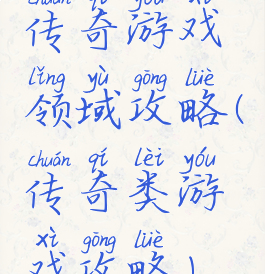 chuán qí yóu xì
传奇游戏
lǐng yù gōng lüè
领域攻略(
chuán qí lèi yóu
传奇类游
xì gōng lüè
戏攻略)